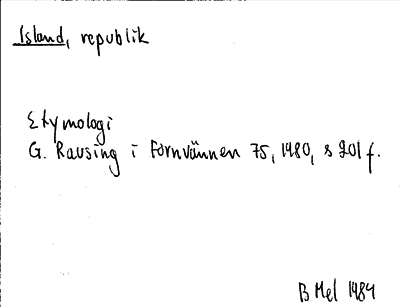 Island, republik
Etymologi
G. Rausing i Fornvännen 75, 1980, s 201 f.
B Mel 1984